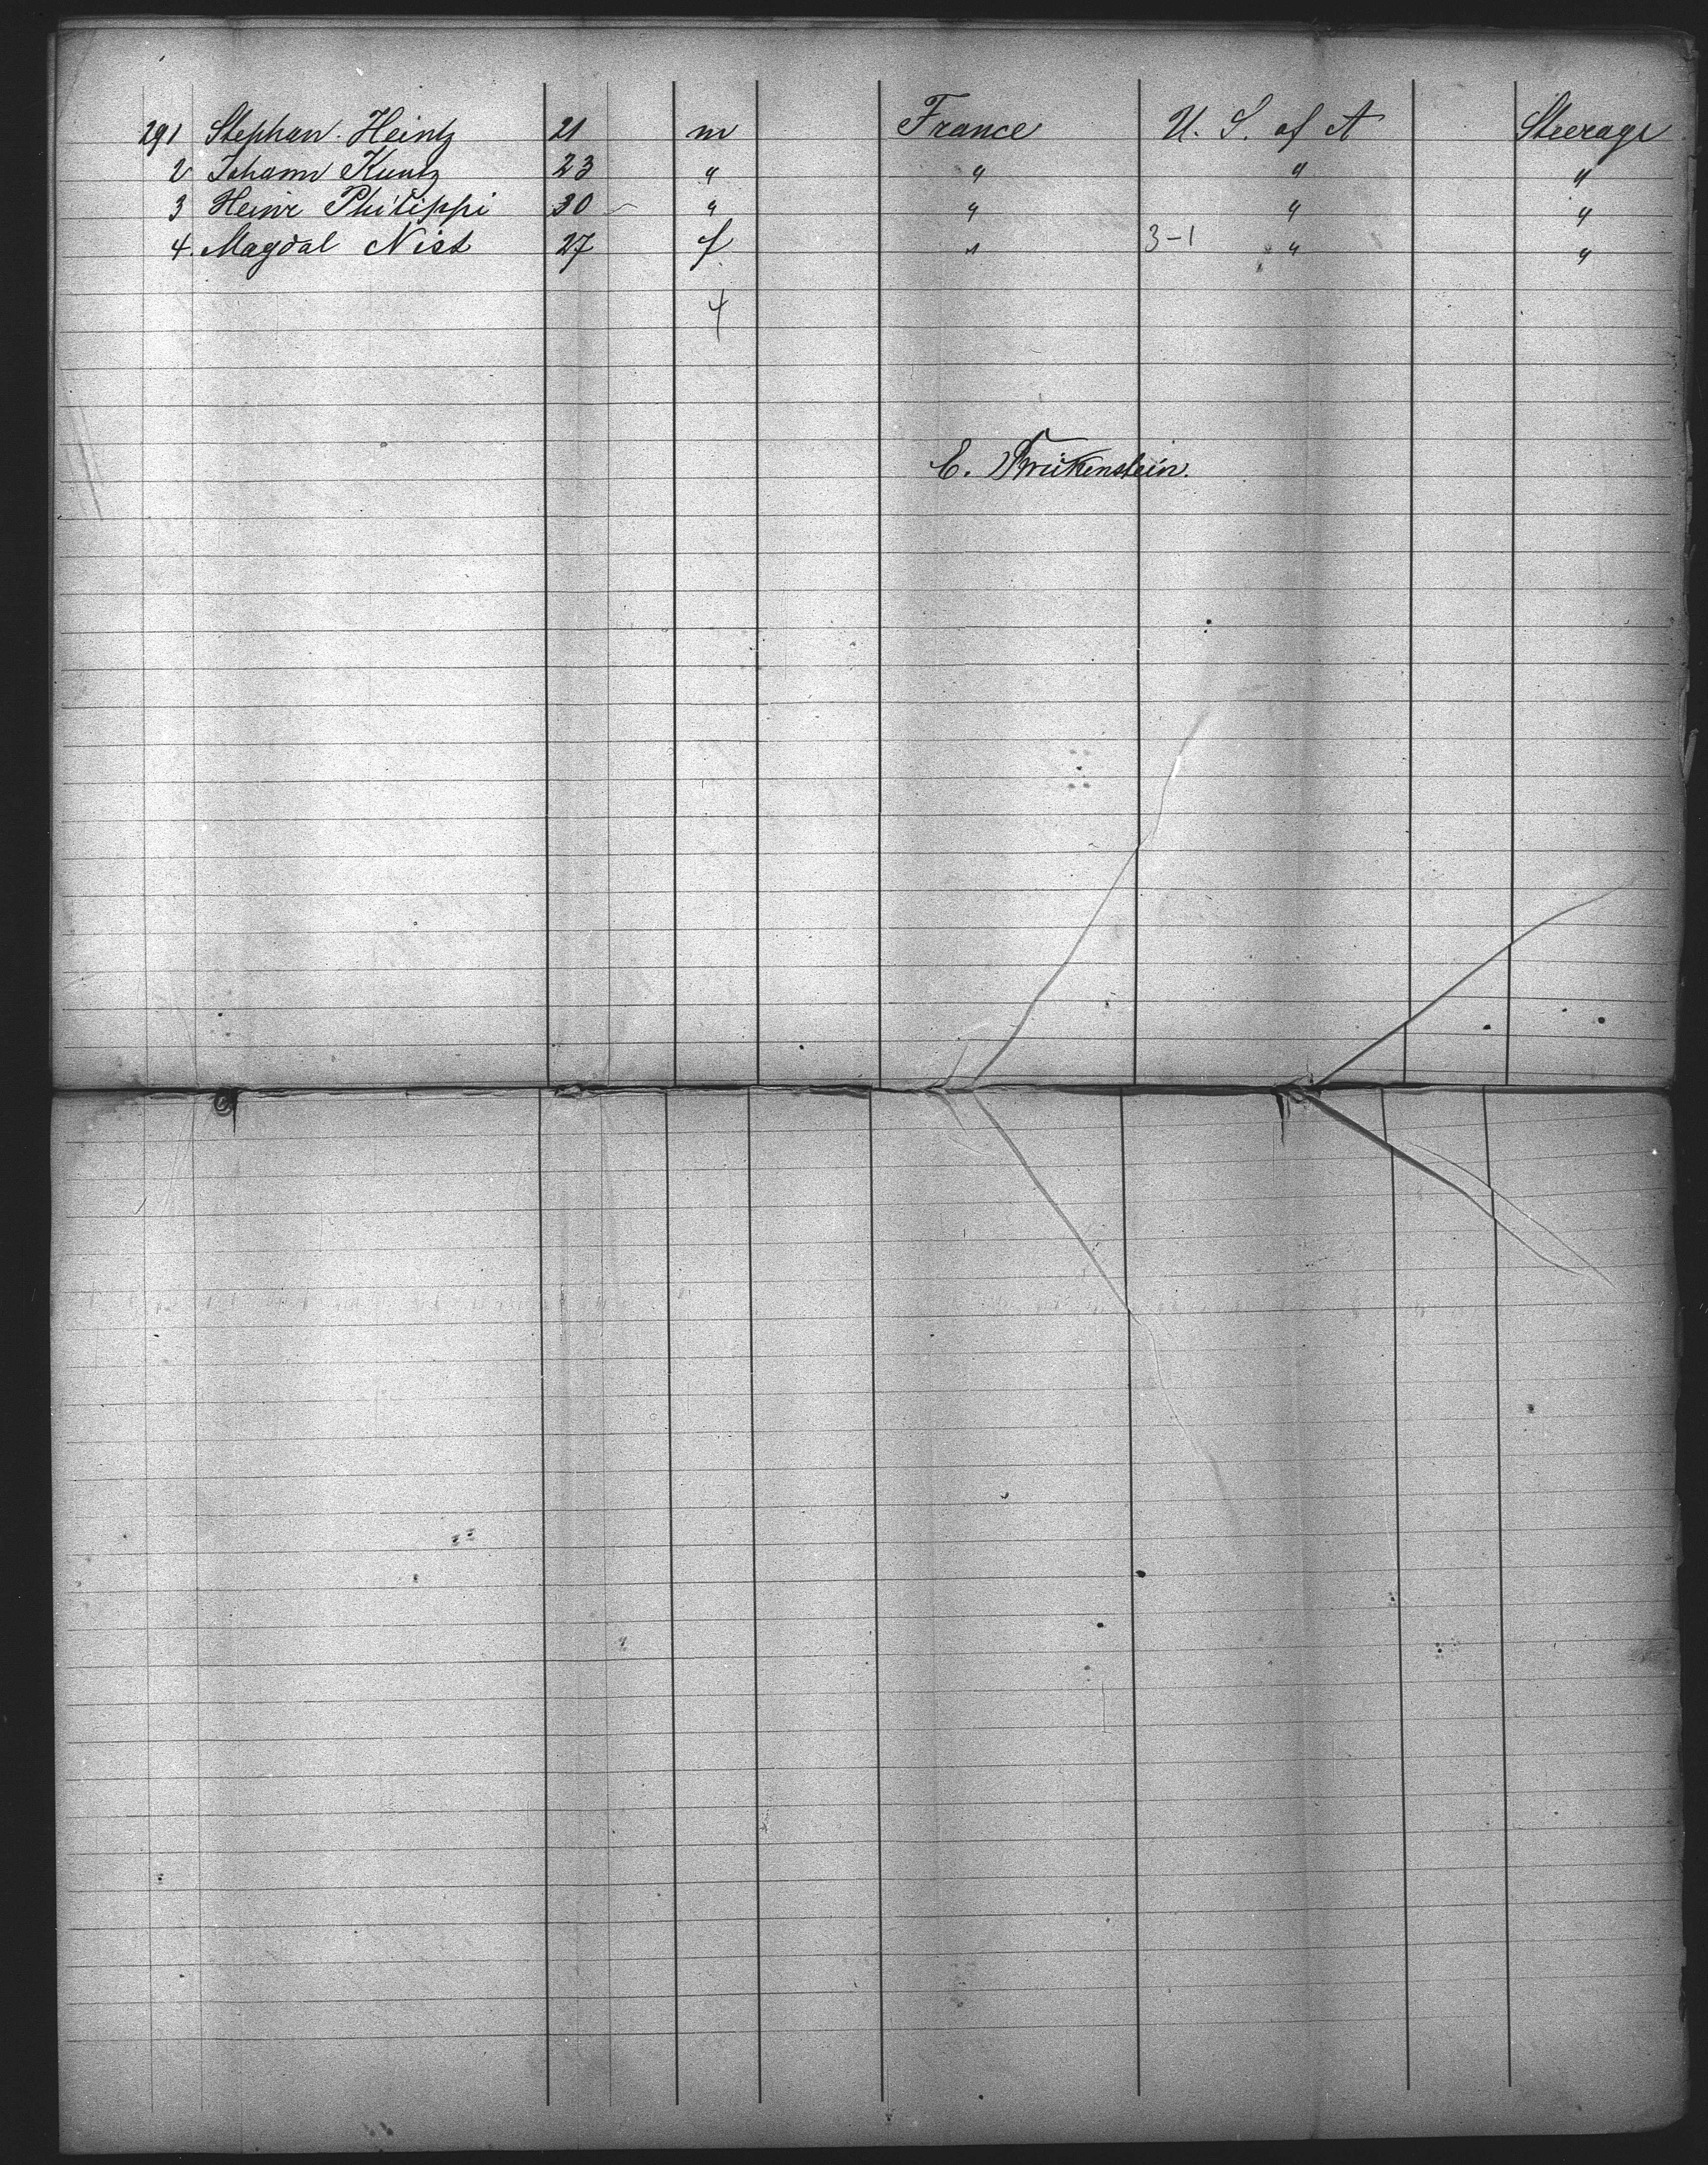 291 Stephan Heintz 21 m France U. S. of A Steerage
2 Johann Kuntz 23 " " " "
3 Heinr Philippi 30 " " " "
4. Magdal Nist 27 f " 3-1 " "
4
E.